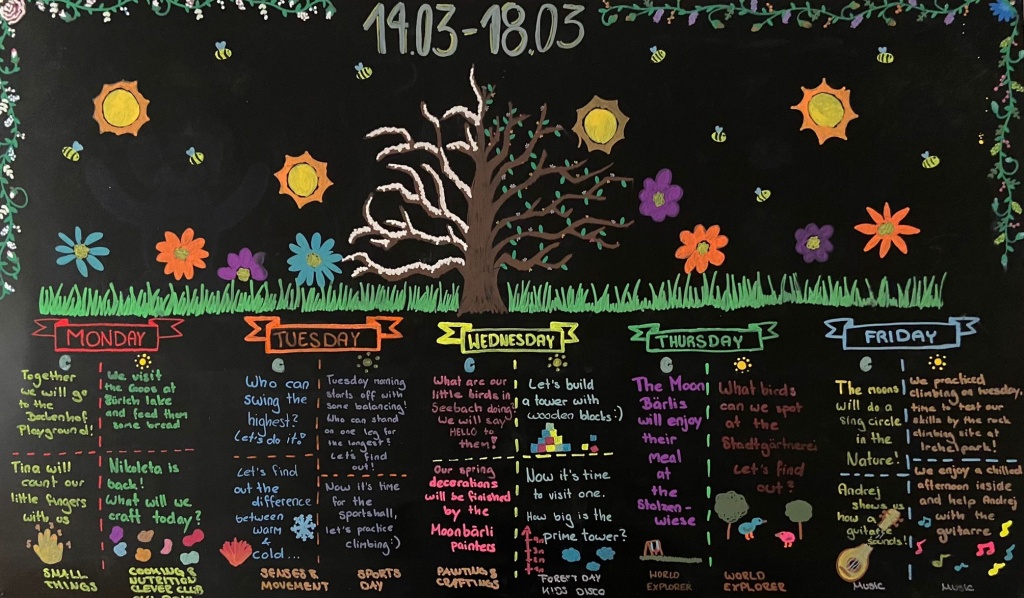 14.03-18.03
MONDAY
Together
we will go
to the
Bachenhof
Playground!
Tina will
count our
little fingers
with us
SMALL
THINGS
We visit
the Coops at
Zürich lake
and feed them
some bread
Nikoleta is
back!
What will we
craft today?
COOKING &
NUTRITION
CLEVER CLUB
TUESDAY
Who can
swing the
highest?
Let's do it!
Let's find
out the
difference
between
warm
&
cold...
SENSES &
MOVEMENT
Tuesday morning
starts off with
some balancing!
Who can stand
on one leg for
the longest?
Let's find
out!
Now it's time
for the
Sportshall,
let's practice
climbing:)
SPORTS
DAY
WEDNESDAY
What are our
little birds in
Seebach doing?
We will say
HELLO to
them!
Our spring
decorations
will be finished
by the
Moonbärli
painters
PAINTING &
CRAFTINGS
Let's build
a tower with
wooden blocks:)
Now it's time
to visit one.
How big is the
prime tower?
FOREST DAY
KIDS DISCO
THURSDAY
The Moon
Bärlis
will enjoy
their
meal
at
the
Stolzen-
wiese
WORLD
EXPLORER
What birds
can we spot
at the
Stadtgärtnerei
Let's find
out?
WORLD
EXPLORER
FRIDAY
The moons
will do a
sing circle
in the
Nature!
Andrej
shows us
how a
guitarre
sounds!
MUSIC
We practiced
climbing on tuesday,
time to test our
skills by the rock
climbing site at
Irchelpark!
We enjoy a chilled
afternoon inside
and help Andrej
with the
guitarre
MUSIC